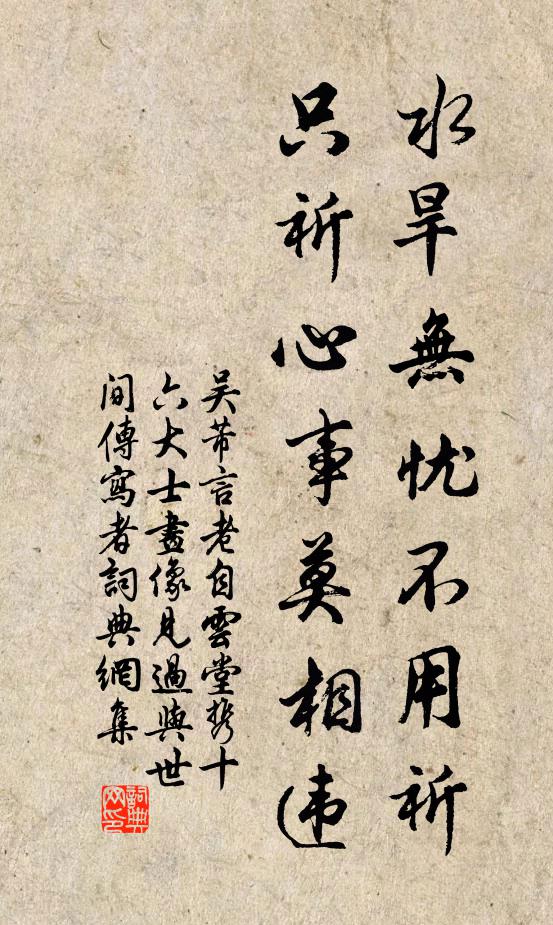 水旱無忧不用祈
只祈心事莫相违
吴芾言老自雲堂携十
六大士畫像見過與世
间傳寫者詞典網集
詞典
网印